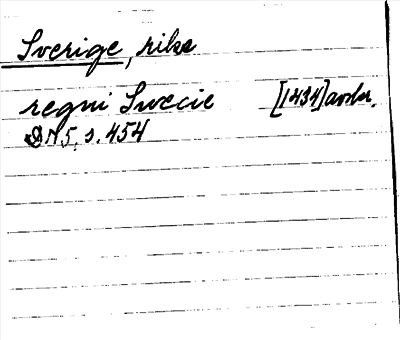 Sverige, rike
regni Swecie [1434] avskr.
DN 5, s. 454